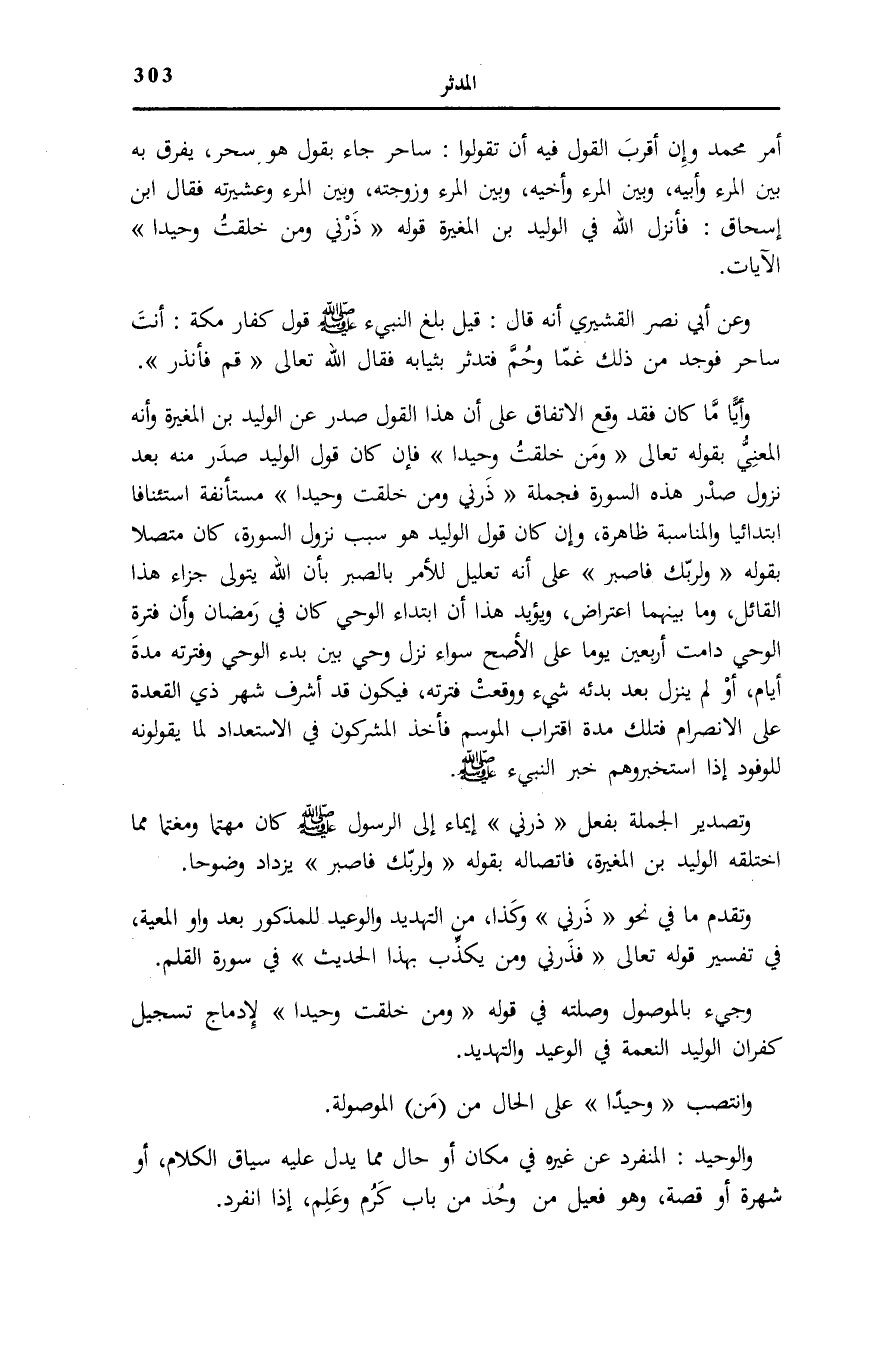 303
المدثر
أمر محمد وإن أقربَ القول فيه أن تقولوا : ساحر جاء بقول هو سحر، يفرق به
بين المرء وأبيه، وبين المرء وأخيه، وبين المرء وزوجته، وبين المرء وعشيرته فقال ابن
إسحاق : فأنزل الله في الوليد بن المغيرة قوله « ذَرْني ومن خلقتُ وحيدا »
الآيات.
وعن أبي نصر القشيري أنه قال : قيل بلغ النبيء ﷺ قول كفار مكة : أنتَ
ساحر فوجد من ذلك غمّا وحُمَّ فتدثر بثيابه فقال الله تعالى « قم فأنذر ».
وأيًّا مَّا كان فقد وقع الاتفاق على أن هذا القول صدر عن الوليد بن المغيرة وأنه
المعنِيُّ بقوله تعالى « ومَن خلقتُ وحيدا » فإن كان قول الوليد صدَر منه بعد
نزول صدْر هذه السورة فجملة « ذَرني ومن خلقت وحيدا » مستأنفة استئنافا
ابتدائيا والمناسبة ظاهرة، وإن كان قول الوليد هو سبب نزول السورة، كان متصلا
بقوله « ولربّك فاصبر » على أنه تعليل للأمر بالصبر بأن الله يتولى جزاء هذا
القائل، وما بينهما اعتراض، ويؤيد هذا أن ابتداء الوحي كان في رَمضان وأن فترة
الوحي دامت أربعين يوما على الأصح سواء نزل وحي بين بدء الوحي وفترته مدةَ
أيام، أوْ لم ينزل بعد بدئه شيء ووقعتْ فترته، فيكون قد أشرف شهر ذي القعدة
على الانصرام فتلك مدة اقتراب الموسم فأخذ المشركون في الاستعداد لما يقولونه
للوفود إذا استخبروهم خبر النبيء ﷺ.
وتصدير الجملة بفعل « ذرني » إيماء إلى الرسول ﷺ كان مهتما ومغتما مما
اختلقه الوليد بن المغيرة، فاتصاله بقوله « ولربّك فاصبر » يزداد وضوحا.
وتقدم ما في نحو « ذَرني » وكَذا، من التهديد والوعيد للمذكور بعد واو المعية،
في تفسير قوله تعالى « فذَرني ومن يكذِّب بهذا الحديث » في سورة القلم.
وجيء بالموصول وصلته في قوله « ومن خلقت وحيدا » لإدماج تسجيل
كفران الوليد النعمة في الوعيد والتهديد.
وانتصب « وحيدًا » على الحال من (مَن) الموصولة.
والوحيد : المنفرد عن غيره في مكان أو حال مما يدل عليه سياق الكلام، أو
شهرة أو قصة، وهو فعيل من وحُدَ من باب كَرُم وعَلِم، إذا انفرد.